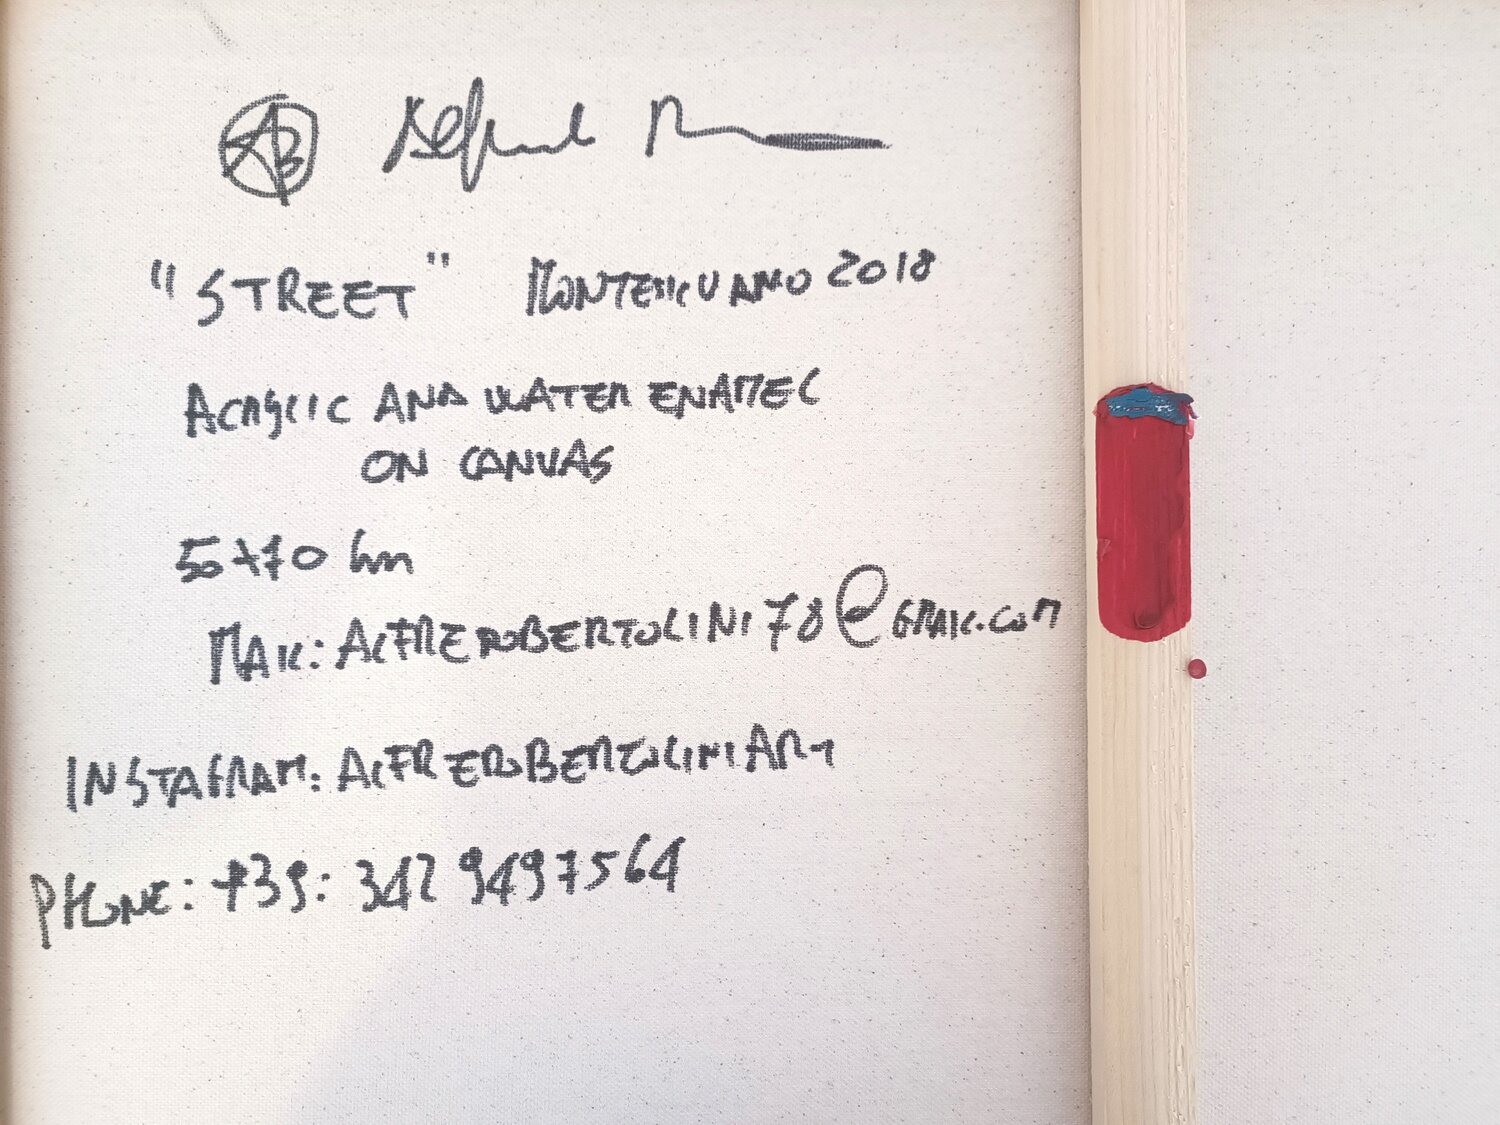 AB Alfredo
"STREET" MONTESICURAMO 2018
ACRYLIC AND WATER ENAMEL
ON CANVAS
50x70 cm
MAIL: ALFREDOBERTOLINI78@GMAIL.COM
INSTAGRAM: ALFREDOBERTOLINIART
PHONE: +39: 342 9497564